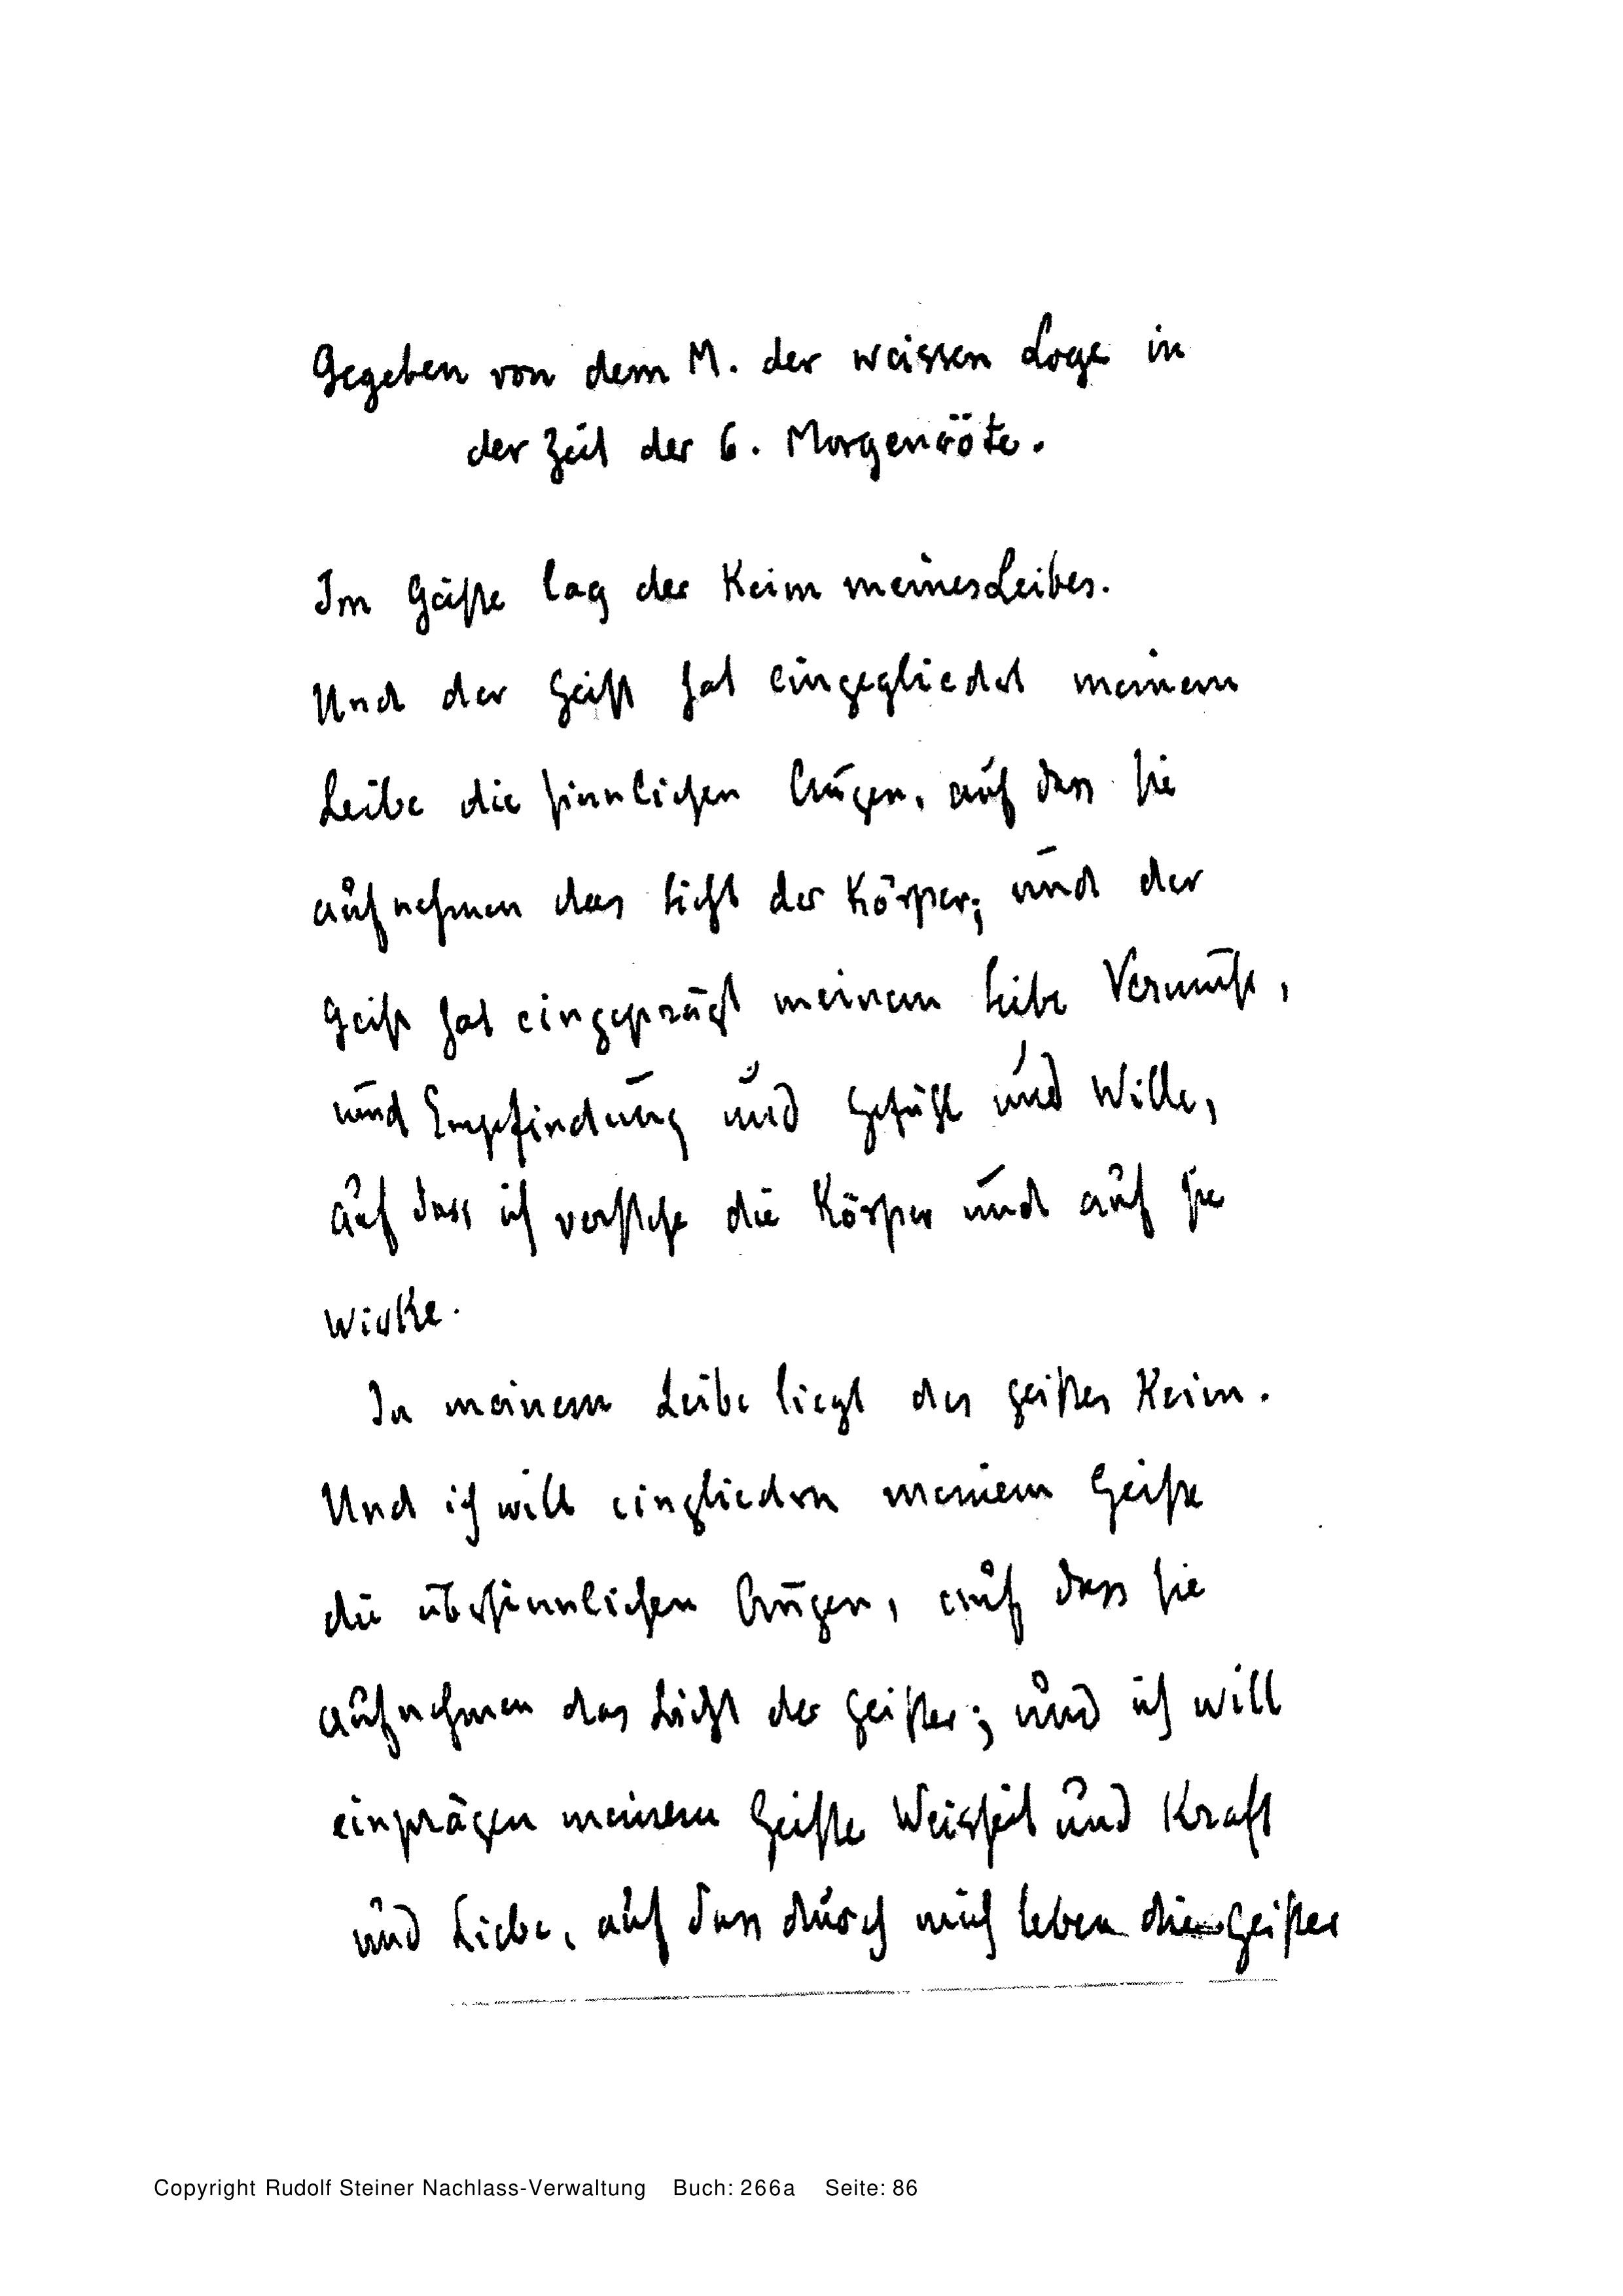 Gegeben von dem M. der weissen Loge in
der Zeit der 6. Morgenröte.
Im Geiste lag der Keim meines Leibes.
Und der Geist hat eingegliedert meinem
Leibe die sinnlichen Augen, auf dass sie
aufnehmen das Licht der Körper; und der
Geist hat eingeprägt meinem Leibe Vernunft,
und Empfindung und Gefühl und Wille,
auf dass ich verstehe die Körper und auf sie
wirke.
In meinem Leibe liegt des Geistes Keim.
Und ich will eingliedern meinem Geiste
die übersinnlichen Augen, auf dass sie
aufnehmen das Licht der Geister; und ich will
einprägen meinem Geiste Weisheit und Kraft
und Liebe, auf dass durch mich leben die Geister
Copyright Rudolf Steiner Nachlass-Verwaltung Buch: 266a Seite: 86